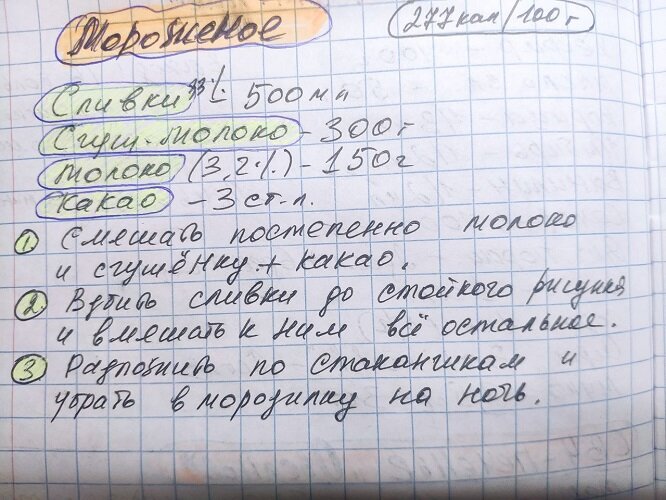 Мороженое
277кал/100г
Сливки 33% - 500мл
Сгущ. молоко - 300г
Молоко (3,2%) - 150г
Какао - 3 ст.л.
1 Смешать постепенно молоко
и сгущёнку + какао.
2 Взбить сливки до стойкого рисунка
и вмешать к ним всё остальное.
3 Разложить по стаканчикам и
убрать в морозилку на ночь.